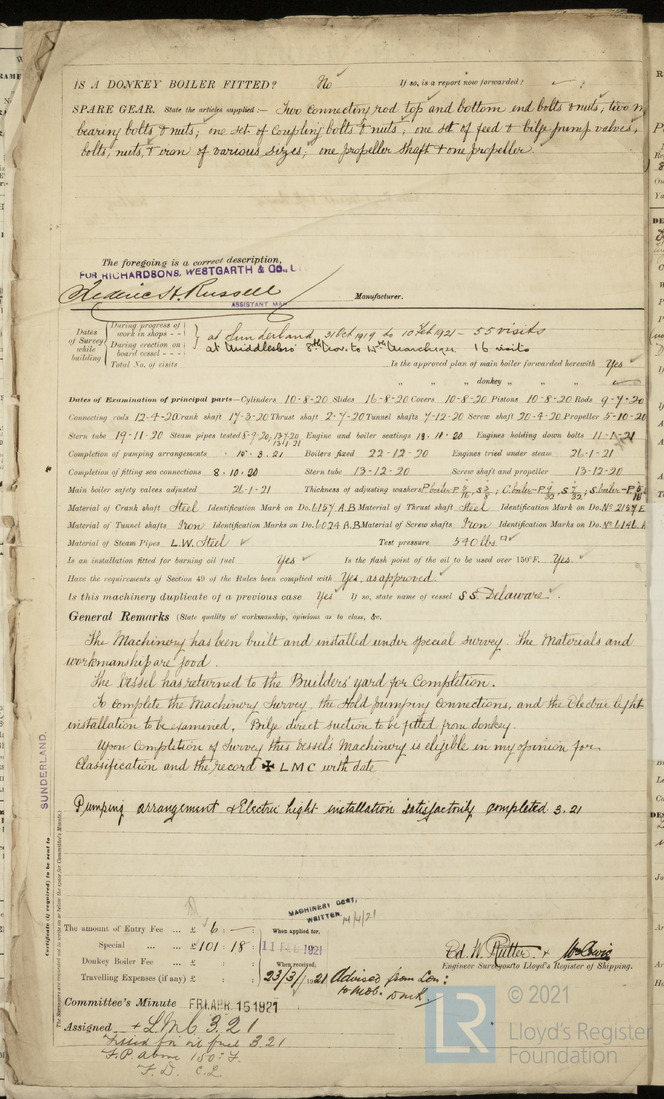 IS A DONKEY BOILER FITTED? No If so, is a report now forwarded?
SPARE GEAR. State the articles supplied:— Two connecting rod top and bottom end bolts & nuts, two
bearing bolts & nuts, one set of coupling bolts & nuts, one set of feed & bilge pump valves,
bolts, nuts, & iron of various sizes, one propeller shaft & one propeller
The foregoing is a correct description,
FOR RICHARDSONS, WESTGARTH & Co., L
Frederic H. Russell
ASSISTANT MAN
Manufacturer.
Dates of Survey while building
During progress of work in shops - -
During erection on board vessel - - -
Total No. of visits
at Sunderland, 31 Oct 1919 to 10 Feb 1921 – 55 visits
at Middlesbro' 8th Nov. to 16 visits
Is the approved plan of main boiler forwarded herewith Yes
" " " donkey " "
Dates of Examination of principal parts—Cylinders 10-8-20 Slides 16-8-20 Covers 10-8-20 Pistons 10-8-20 Rods 9-7-20
Connecting rods 12-4-20 Crank shaft 17-3-20 Thrust shaft 2-7-20 Tunnel shafts 7-12-20 Screw shaft 20-4-20 Propeller 5-10-20
Stern tube 19-11-20 Steam pipes tested 8-9-20, Engine and boiler seatings 18.10.20 Engines holding down bolts 11-1-21
Completion of pumping arrangements 15.3.21 Boilers fixed 22-12-20 Engines tried under steam 21-1-21
Completion of fitting sea connections 8.10.20 Stern tube 13-12-20 Screw shaft and propeller 13-12-20
Main boiler safety valves adjusted 21-1-21 Thickness of adjusting washers
Material of Crank shaft Steel Identification Mark on Do. 6157 A.B Material of Thrust shaft Steel Identification Mark on Do. No 2157 E
Material of Tunnel shafts Iron Identification Marks on Do. 6024 A.B Material of Screw shafts Iron Identification Marks on Do. No 6146
Material of Steam Pipes L.W. Steel Test pressure 540 lbs □"
Is an installation fitted for burning oil fuel Yes Is the flash point of the oil to be used over 150°F. Yes.
Have the requirements of Section 49 of the Rules been complied with Yes, as approved
Is this machinery duplicate of a previous case Yes If so, state name of vessel S.S. Delaware.
General Remarks (State quality of workmanship, opinions as to class, &c.
The Machinery has been built and installed under special survey. The Materials and
workmanship are good.
The Vessel has returned to the Builders' yard for Completion.
To complete the Machinery Survey, the Hold pumping Connections, and the Electric light
installation to be examined. Bilge direct suction to be fitted from donkey.
Upon Completion of Survey this Vessel's Machinery is eligible in my opinion for
Classification and the record ✠ LMC with date
Pumping arrangement & Electric Light installation satisfactorily completed 3.21
SUNDERLAND.
Certificate (if required) to be sent to
(The Surveyors are requested not to write on or below the space for Committee's Minute.)
MACHINERY CERT. WRITTEN 14/4/21
The amount of Entry Fee ... £ 6 : - : When applied for,
Special ... ... £ 101 : 18 : 11 FEB 1921
Donkey Boiler Fee ... £ : : When received,
Travelling Expenses (if any) £ : : 23/3/1921 Advised from Lon:
Ed. W. Rutter &
Engineer Surveyors to Lloyd's Register of Shipping.
Committee's Minute FRI. APR. 15 1921
Assigned + LMC 3.21
Fitted for oil fuel 3.21
F.P. above 150° F.
F.D. C.L.
© 2021
LR Lloyd's Register
Foundation